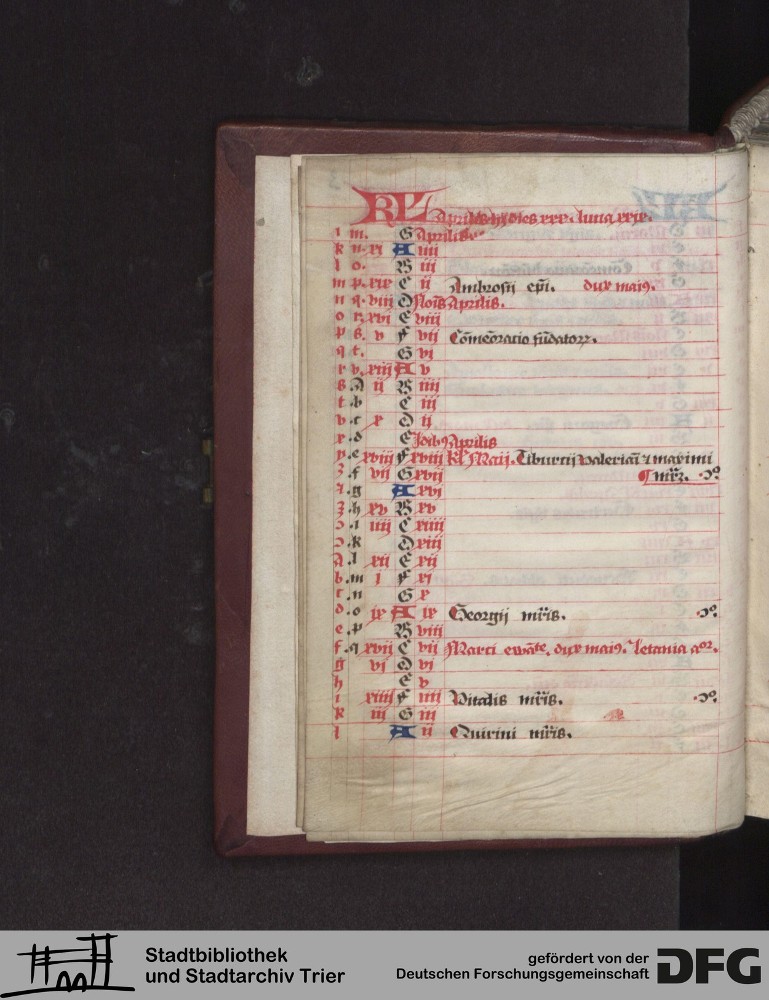 KL Aprilis hȝ dies xxx luna xxix.
i m. G Aprilis
k n. xi A iiii
l o. B iii
m p. xix C ii Ambrosij epī. dux maiꝰ.
n q. viii D Noīs Aprilis.
o r. xvi E viii
p s. v F vii Cōmēoratio fūdatorꝝ.
q t. G vi
r v. xiii A v
s ii B iiii
t b C iii
v c x D ii
x d E Idibꝰ Aprilis
y e xviii F xviii kl' Maij. Tiburtij valeriāī ⁊ maximi
z f vii G xvii mr̄ꝝ.
g A xvi
h xv B xv
i iiii C xiiii
k D xiii
A l xii E xii
b m i F xi
c n G x
d o ix A ix Georgij mr̄is.
e p B viii
f q xvii C vii Marci ewāte. dux maiꝰ. Letania
g vi D vi
h E v
i xiiii F iiii Vitalis mr̄is.
k iii G iii
l A ii Quirini mr̄is.
Stadtbibliothek
und Stadtarchiv Trier
gefördert von der
Deutschen Forschungsgemeinschaft
DFG